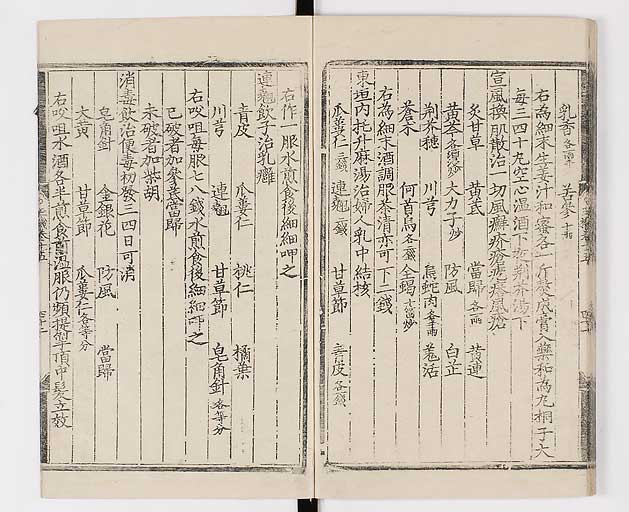 乳香各一兩 苦參十兩
右為細末生姜汁和蜜各一斤熬成膏入藥和為丸桐子大
每三四十九空心溫酒下夜荆芥湯下
宣風換肌散治一切風癬疥瘡疙瘩風瘡
炙甘草 黃芪 當歸各一兩 黃連
黃芩各酒炒 大力子炒 防風 白芷
荆芥穗 川芎 烏蛇肉各三兩 羌活
蒼朮 何首烏各三錢 全蝎十箇炒
右為細末酒調服茶淸亦可下二錢
東垣內托升麻湯治婦人乳中結核
瓜蔞仁三錢 連翹二錢 甘草節 靑皮各一錢
右作一服水煎食後細細呷之
連翹飮子治乳癰
青皮 瓜蔞仁 桃仁 橘葉
川芎 連翹 甘草節 皂角針各等分
右㕮咀每服七八錢水煎食後細細呷之
已破者加參芪當歸
未破者加柴胡
消毒飮治便毒初發三四日可消
皂角針 金銀花 防風 當歸
大黃 甘草節 瓜蔞仁各等分
右㕮咀水酒各半煎食前溫服仍頻提掣頂中髮立效